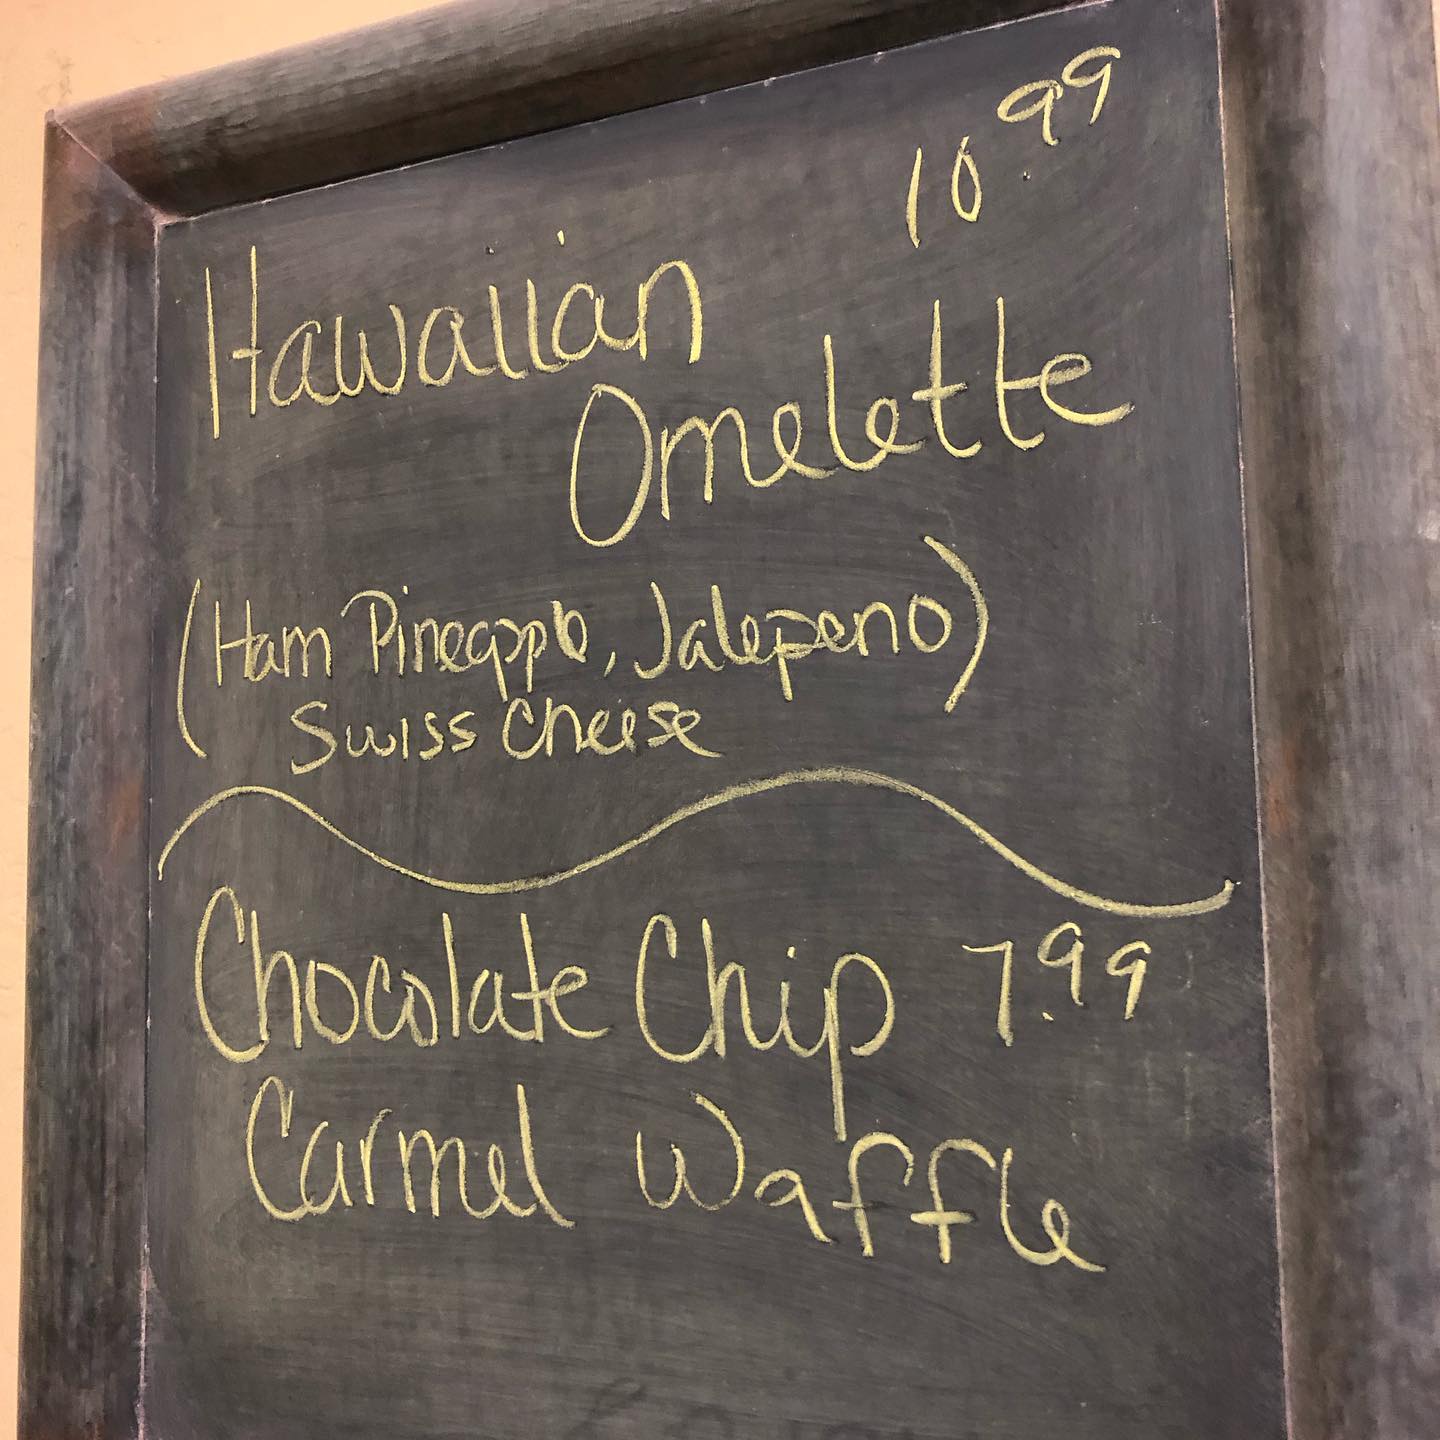 10.99
Hawaiian
Omelette
(Ham Pineapple, Jalepeno)
Swiss Cheese
Chocolate Chip 7.99
Carmel Waffle